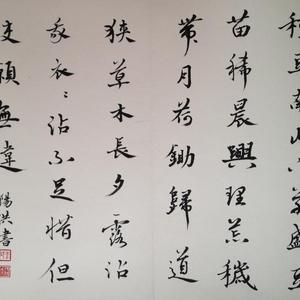 種豆南山下草盛豆
苗稀晨興理荒穢
帶月荷鋤歸道
狹草木長夕露沾
我衣〻沾不足惜但
使願無違
楊洪書